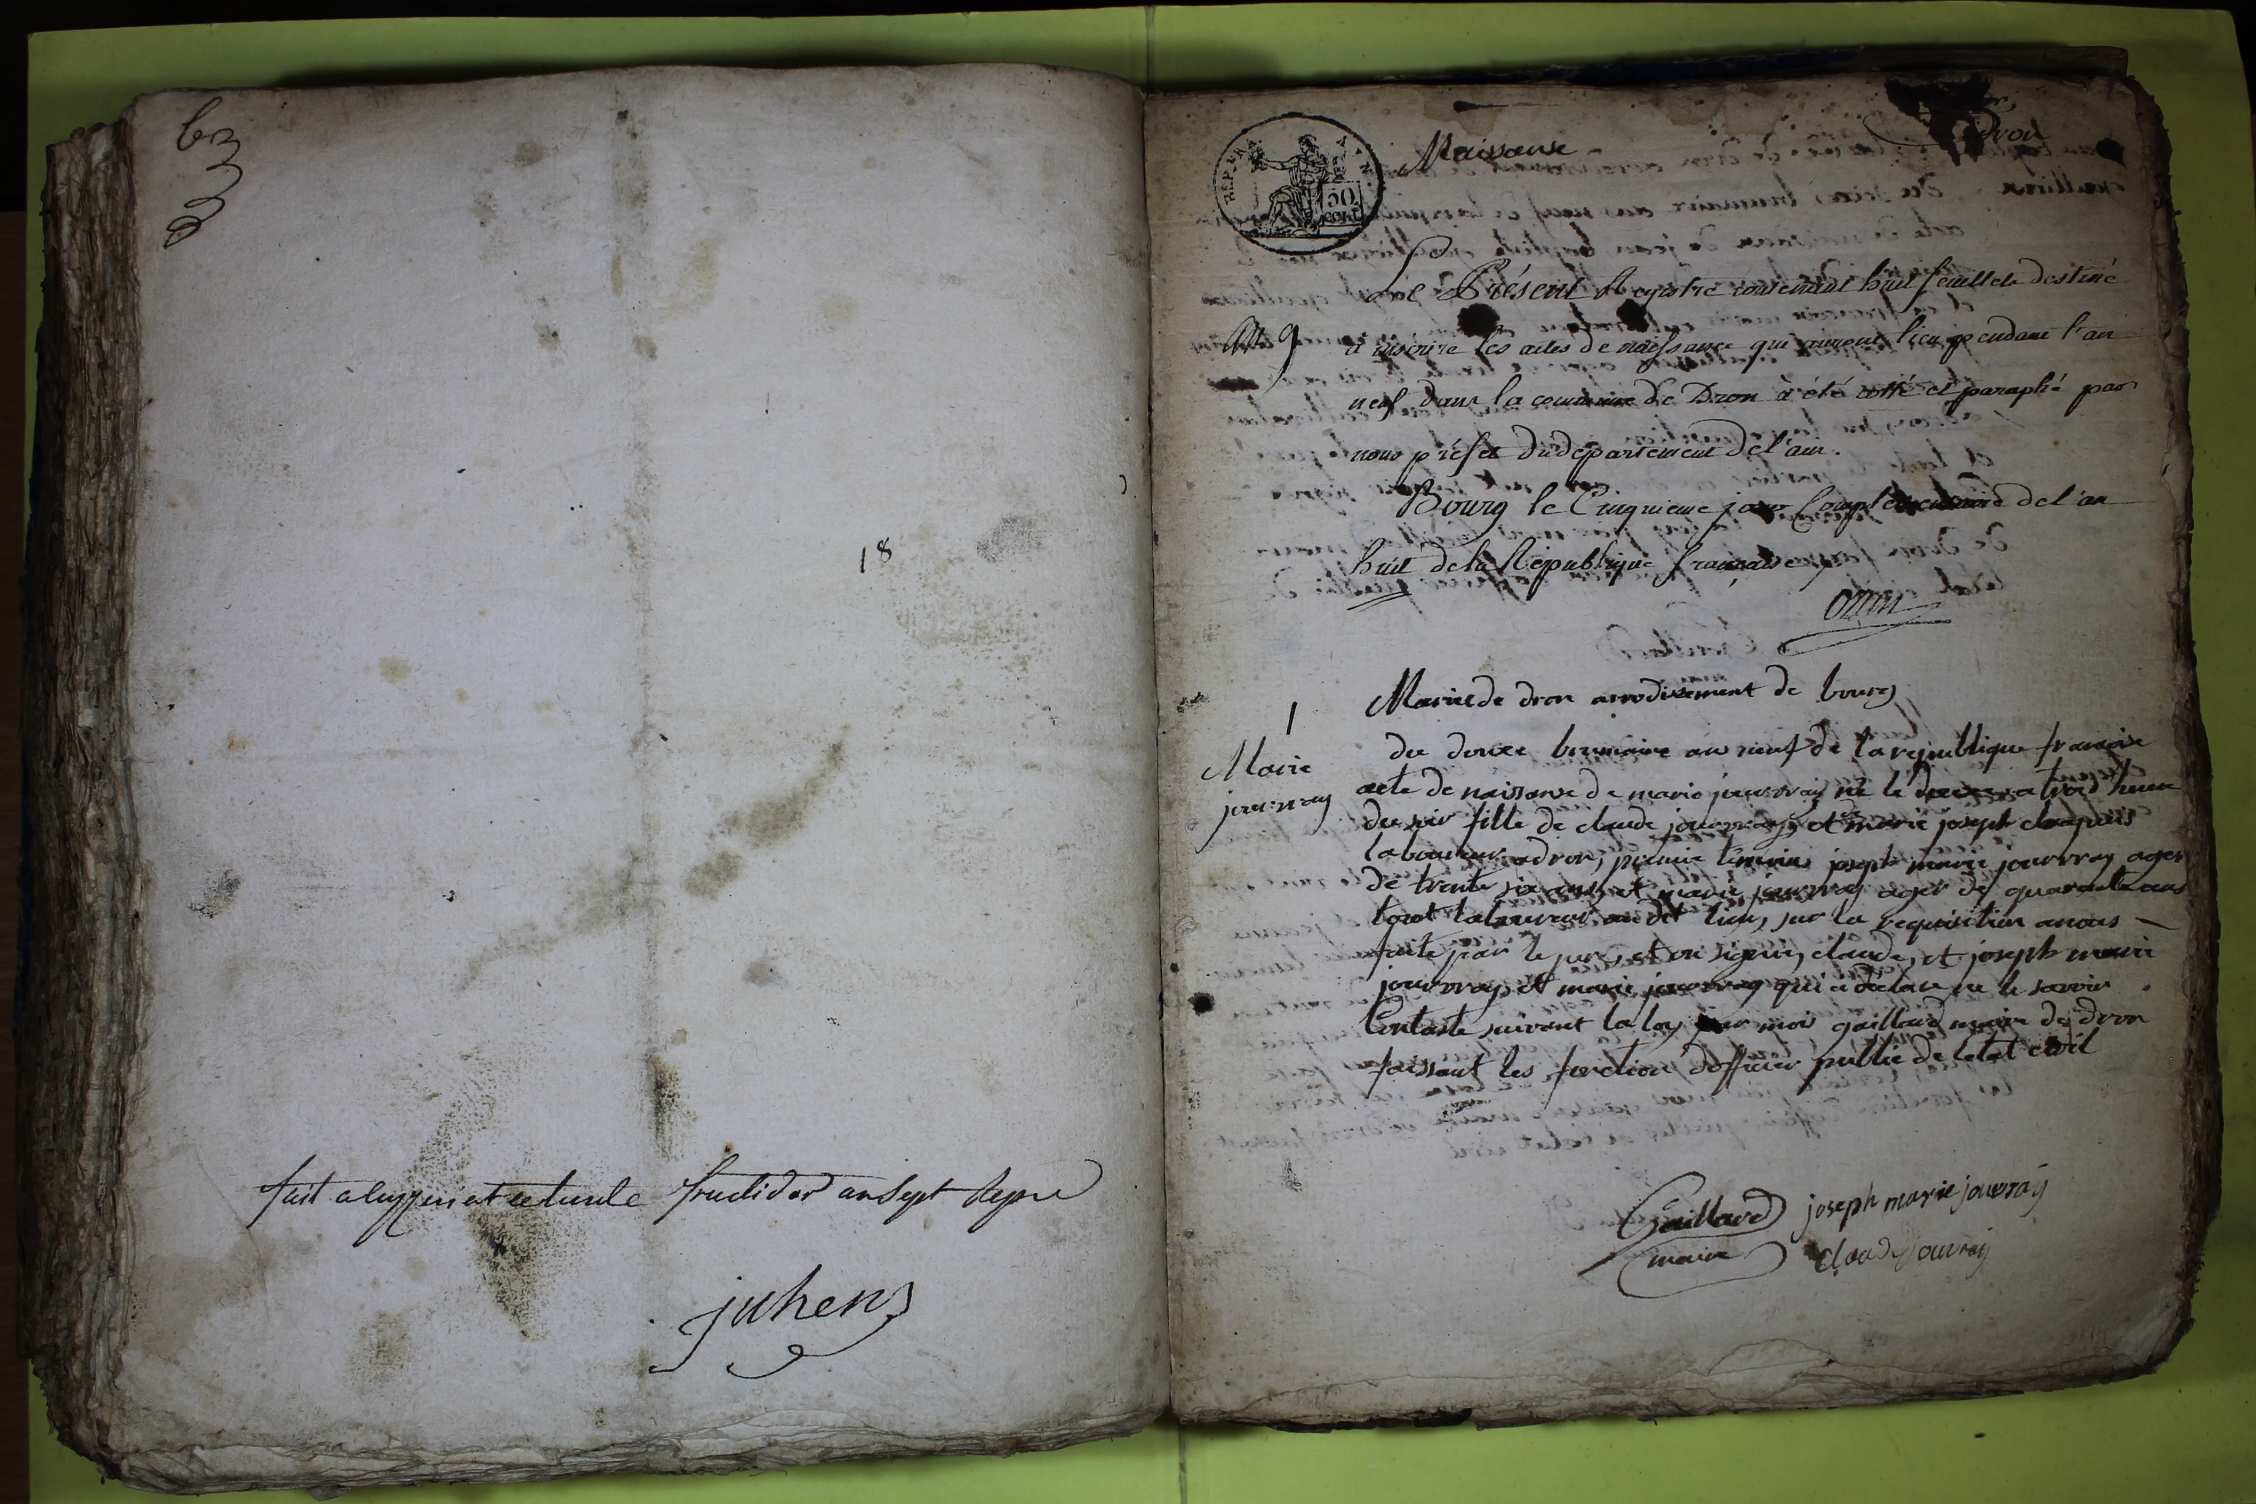 18
fait a ce trente fructidor an sept
juhen
REPUB
50
CENT
Naissance
Dron
Le Présent Registre contenant huit feuillets destiné
an 9 à inscrire les actes de naissance qui auront lieu pendant l'an
neuf dans la commune de Dron à été cotté et paraphé par
nous préfet du département de l'ain.
Bourg le Cinquieme jour Complémentaire de l'an
huit de la République française,
Ozun
1
Marie
jouvray
Mairie de dron arrodisement de bourg
du douze brumaire an neuf de la republique francoise
acte de naissance de marie jouvray né le douze a trois heure
du soir fille de claude jouvray et marie joseph chapuis
laboureur a dron, premier témoins joseph marie jouvray ager
de trente six ans, et marie jouvray ager de quarante ans
tout laboureur au dit lieu, sur la requisition a nous
faite par le pere, et on signer, claude, et joseph marie
jouvray, et marie jouvray qui a déclare ne le savoir
Contaste suivant la loy par mois gaillard maire de dron
faissant les fonction d'officier public de letat civil
Gaillard joseph marie jouvray
maire claude jouvray